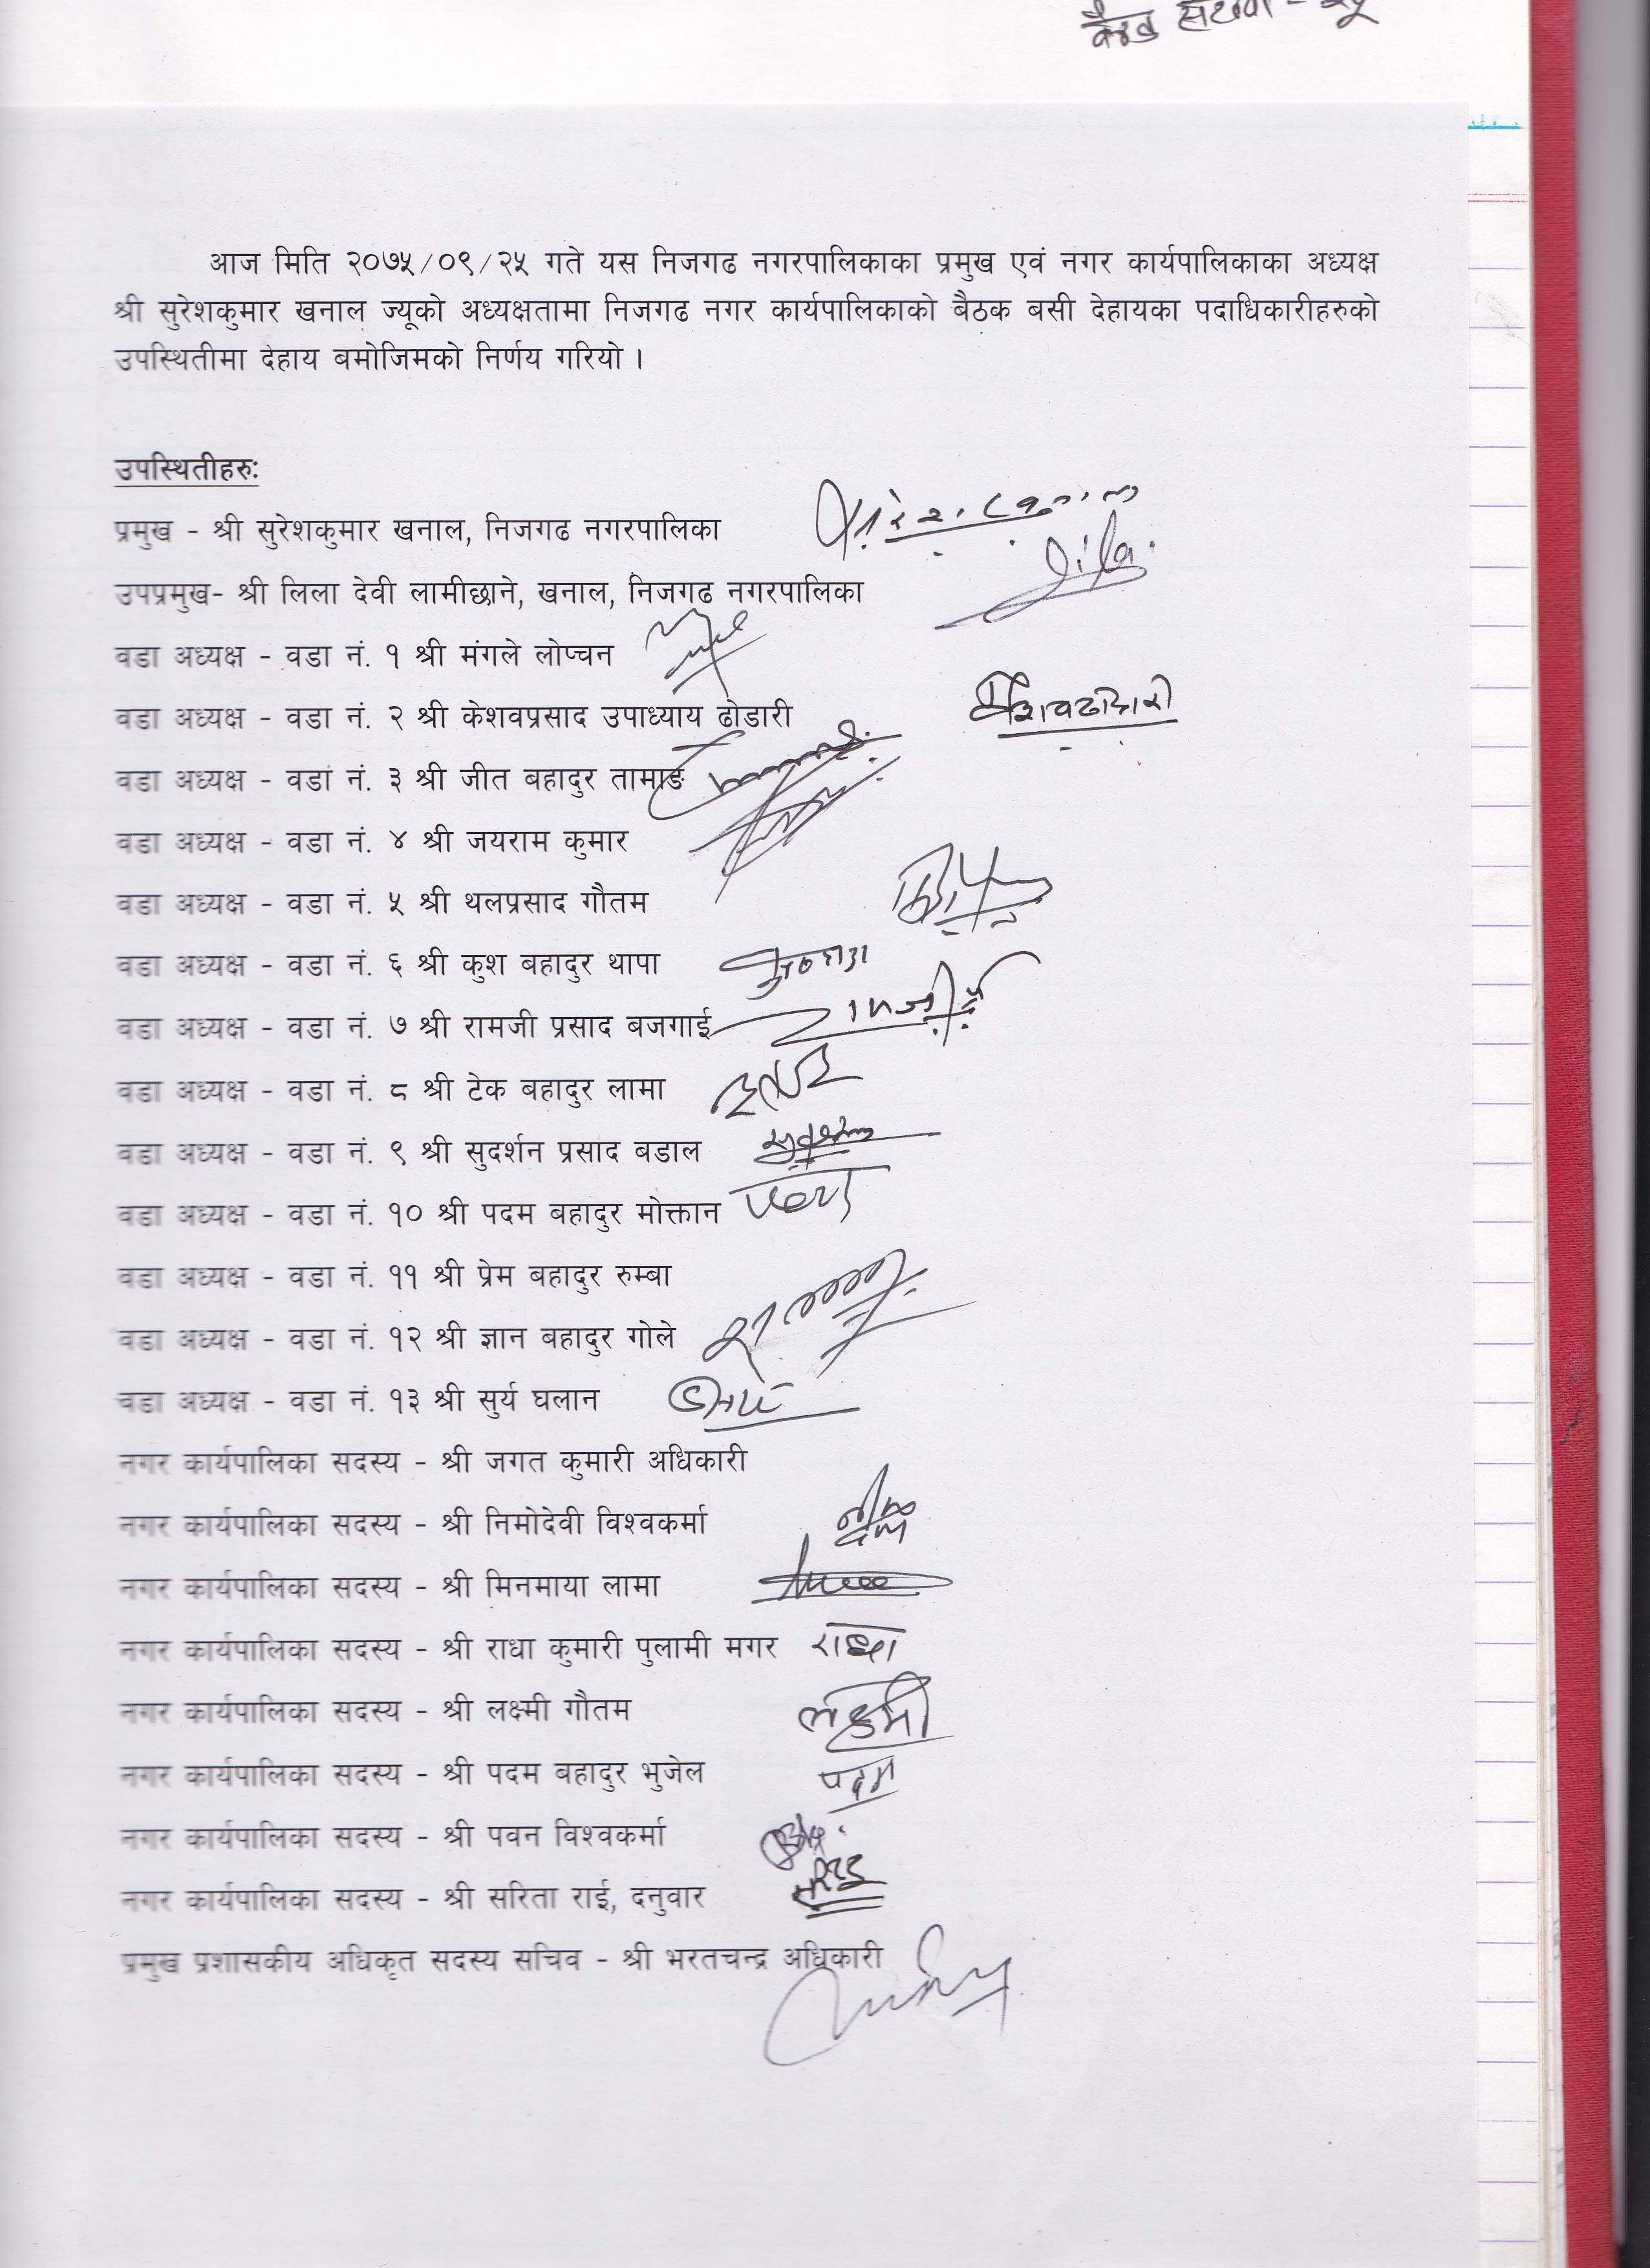 आज मिति २०७५/०९/२५ गते यस निजगढ नगरपालिकाका प्रमुख एवं नगर कार्यपालिकाका अध्यक्ष
श्री सुरेशकुमार खनाल ज्यूको अध्यक्षतामा निजगढ नगर कार्यपालिकाको बैठक बसी देहायका पदाधिकारीहरुको
उपस्थितीमा देहाय बमोजिमको निर्णय गरियो ।
उपस्थितीहरुः
प्रमुख - श्री सुरेशकुमार खनाल, निजगढ नगरपालिका
उपप्रमुख- श्री लिला देवी लामीछाने, खनाल, निजगढ नगरपालिका
वडा अध्यक्ष - वडा नं. १ श्री मंगले लोप्चन
वडा अध्यक्ष - वडा नं. २ श्री केशवप्रसाद उपाध्याय ढोडारी
वडा अध्यक्ष - वडा नं. ३ श्री जीत बहादुर तामाङ
वडा अध्यक्ष - वडा नं. ४ श्री जयराम कुमार
वडा अध्यक्ष - वडा नं. ५ श्री थलप्रसाद गौतम
वडा अध्यक्ष - वडा नं. ६ श्री कुश बहादुर थापा
वडा अध्यक्ष - वडा नं. ७ श्री रामजी प्रसाद बजगाई
वडा अध्यक्ष - वडा नं. ८ श्री टेक बहादुर लामा
वडा अध्यक्ष - वडा नं. ९ श्री सुदर्शन प्रसाद बडाल
वडा अध्यक्ष - वडा नं. १० श्री पदम बहादुर मोक्तान
वडा अध्यक्ष - वडा नं. ११ श्री प्रेम बहादुर रुम्बा
वडा अध्यक्ष - वडा नं. १२ श्री ज्ञान बहादुर गोले
वडा अध्यक्ष - वडा नं. १३ श्री सुर्य घलान
नगर कार्यपालिका सदस्य - श्री जगत कुमारी अधिकारी
नगर कार्यपालिका सदस्य - श्री निमोदेवी विश्वकर्मा
नगर कार्यपालिका सदस्य - श्री मिनमाया लामा
नगर कार्यपालिका सदस्य - श्री राधा कुमारी पुलामी मगर राधा
नगर कार्यपालिका सदस्य - श्री लक्ष्मी गौतम लक्ष्मी
नगर कार्यपालिका सदस्य - श्री पदम बहादुर भुजेल पदम
नगर कार्यपालिका सदस्य - श्री पवन विश्वकर्मा
नगर कार्यपालिका सदस्य - श्री सरिता राई, दनुवार
प्रमुख प्रशासकीय अधिकृत सदस्य सचिव - श्री भरतचन्द्र अधिकारी